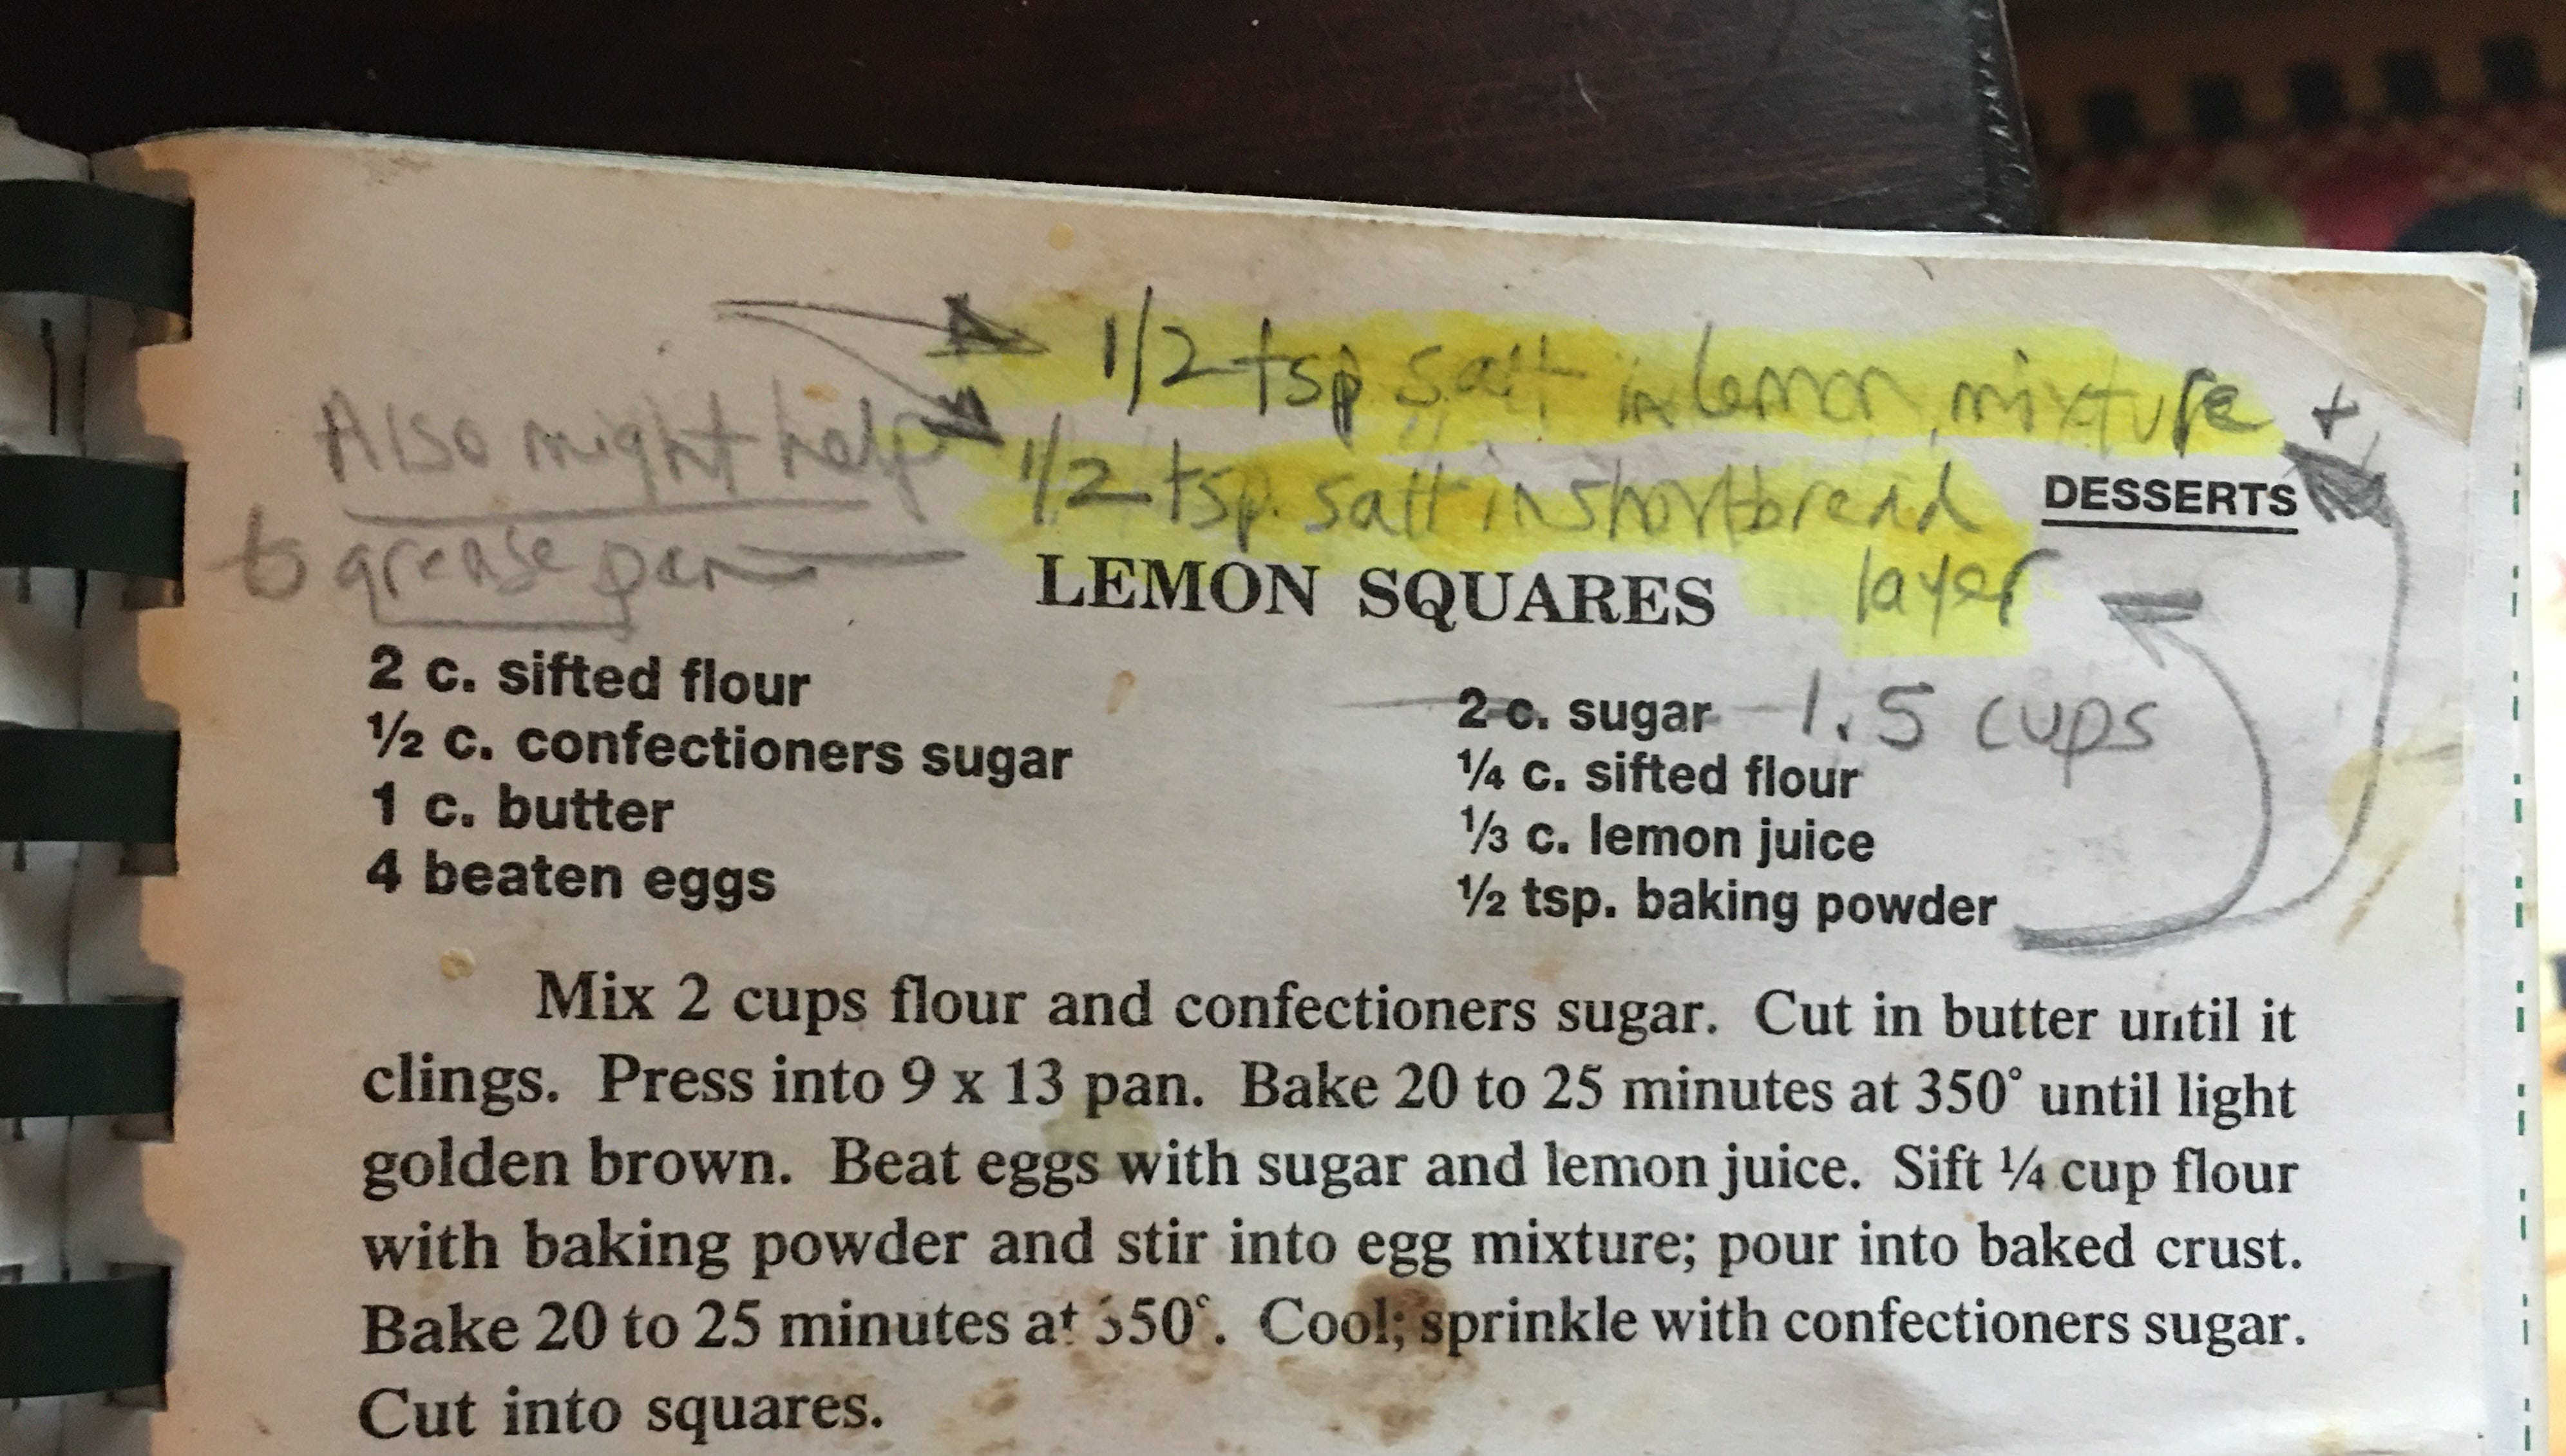 1/2 tsp salt in lemon mixture +
Also might help
1/2 tsp. salt in shortbread
layer
to grease pan
DESSERTS
LEMON SQUARES
2 c. sifted flour
½ c. confectioners sugar
1 c. butter
4 beaten eggs
2 c. sugar 1.5 cups
¼ c. sifted flour
⅓ c. lemon juice
½ tsp. baking powder
Mix 2 cups flour and confectioners sugar. Cut in butter until it
clings. Press into 9 x 13 pan. Bake 20 to 25 minutes at 350° until light
golden brown. Beat eggs with sugar and lemon juice. Sift ¼ cup flour
with baking powder and stir into egg mixture; pour into baked crust.
Bake 20 to 25 minutes at 350°. Cool; sprinkle with confectioners sugar.
Cut into squares.